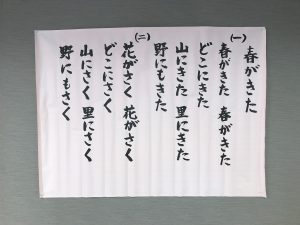 春がきた
(一)
春がきた 春がきた
どこにきた
山にきた 里にきた
野にもきた
(二)
花がさく 花がさく
どこにさく
山にさく 里にさく
野にもさく